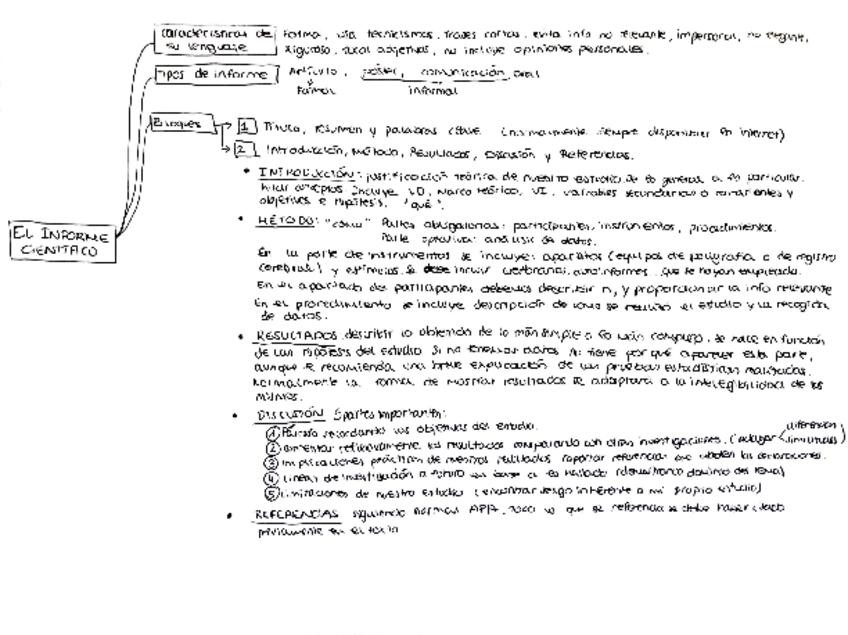 Características de Formal, usa tecnicismos, frases cortas, evita info no relevante, impersonal, no elegante,
su lenguaje riguroso, pocos adjetivos, no incluye opiniones personales.
Tipos de informe Artículo, póster, comunicación oral
Formal informal
Bloques 1 Título, resumen y palabras clave (normalmente siempre disponibles en internet)
2 Introducción, Método, Resultados, Discusión y Referencias.
EL INFORME
CIENTÍFICO
• INTRODUCCIÓN: justificación teórica de nuestro estudio. de lo general a lo particular.
conceptos incluye VD, marco teórico, VI, variables secundarias o y
objetivos e hipótesis. "qué".
• MÉTODO: "cómo" Partes obligatorias: participantes, instrumentos, procedimientos.
Parte optativa: análisis de datos.
En la parte de instrumentos se incluyen aparatos (equipos de poligrafía o de registro
cerebral) y estímulos. Se debe incluir autoinformes que se hayan empleado.
En el apartado de participantes debemos describir n, y proporcionar la info relevante
En el procedimiento se incluye descripción de como se realizó el estudio y la recogida
de datos.
• RESULTADOS describir lo obtenido de lo más simple a lo más complejo. Se hace en función
de las hipótesis del estudio si no tenemos datos no tiene por qué aparecer esta parte,
aunque se recomienda una breve explicación de las pruebas estadísticas realizadas.
Normalmente la forma de mostrar resultados se adaptará a la inteligibilidad de los
mismos.
• DISCUSIÓN 5 partes importantes:
① Párrafo recordando los objetivos del estudio.
② comentar los resultados comparando con otras investigaciones. diferencias
similitudes
③ implicaciones prácticas de nuestros resultados aportar referencias que las
④ Líneas de investigación a futuro en base a lo hallado dominio del tema)
⑤ Limitaciones de nuestro estudio ( sesgo inherente a mi propio estudio)
• REFERENCIAS siguiendo normas APA. Todo lo que se referencia se debe haber citado
previamente en el texto